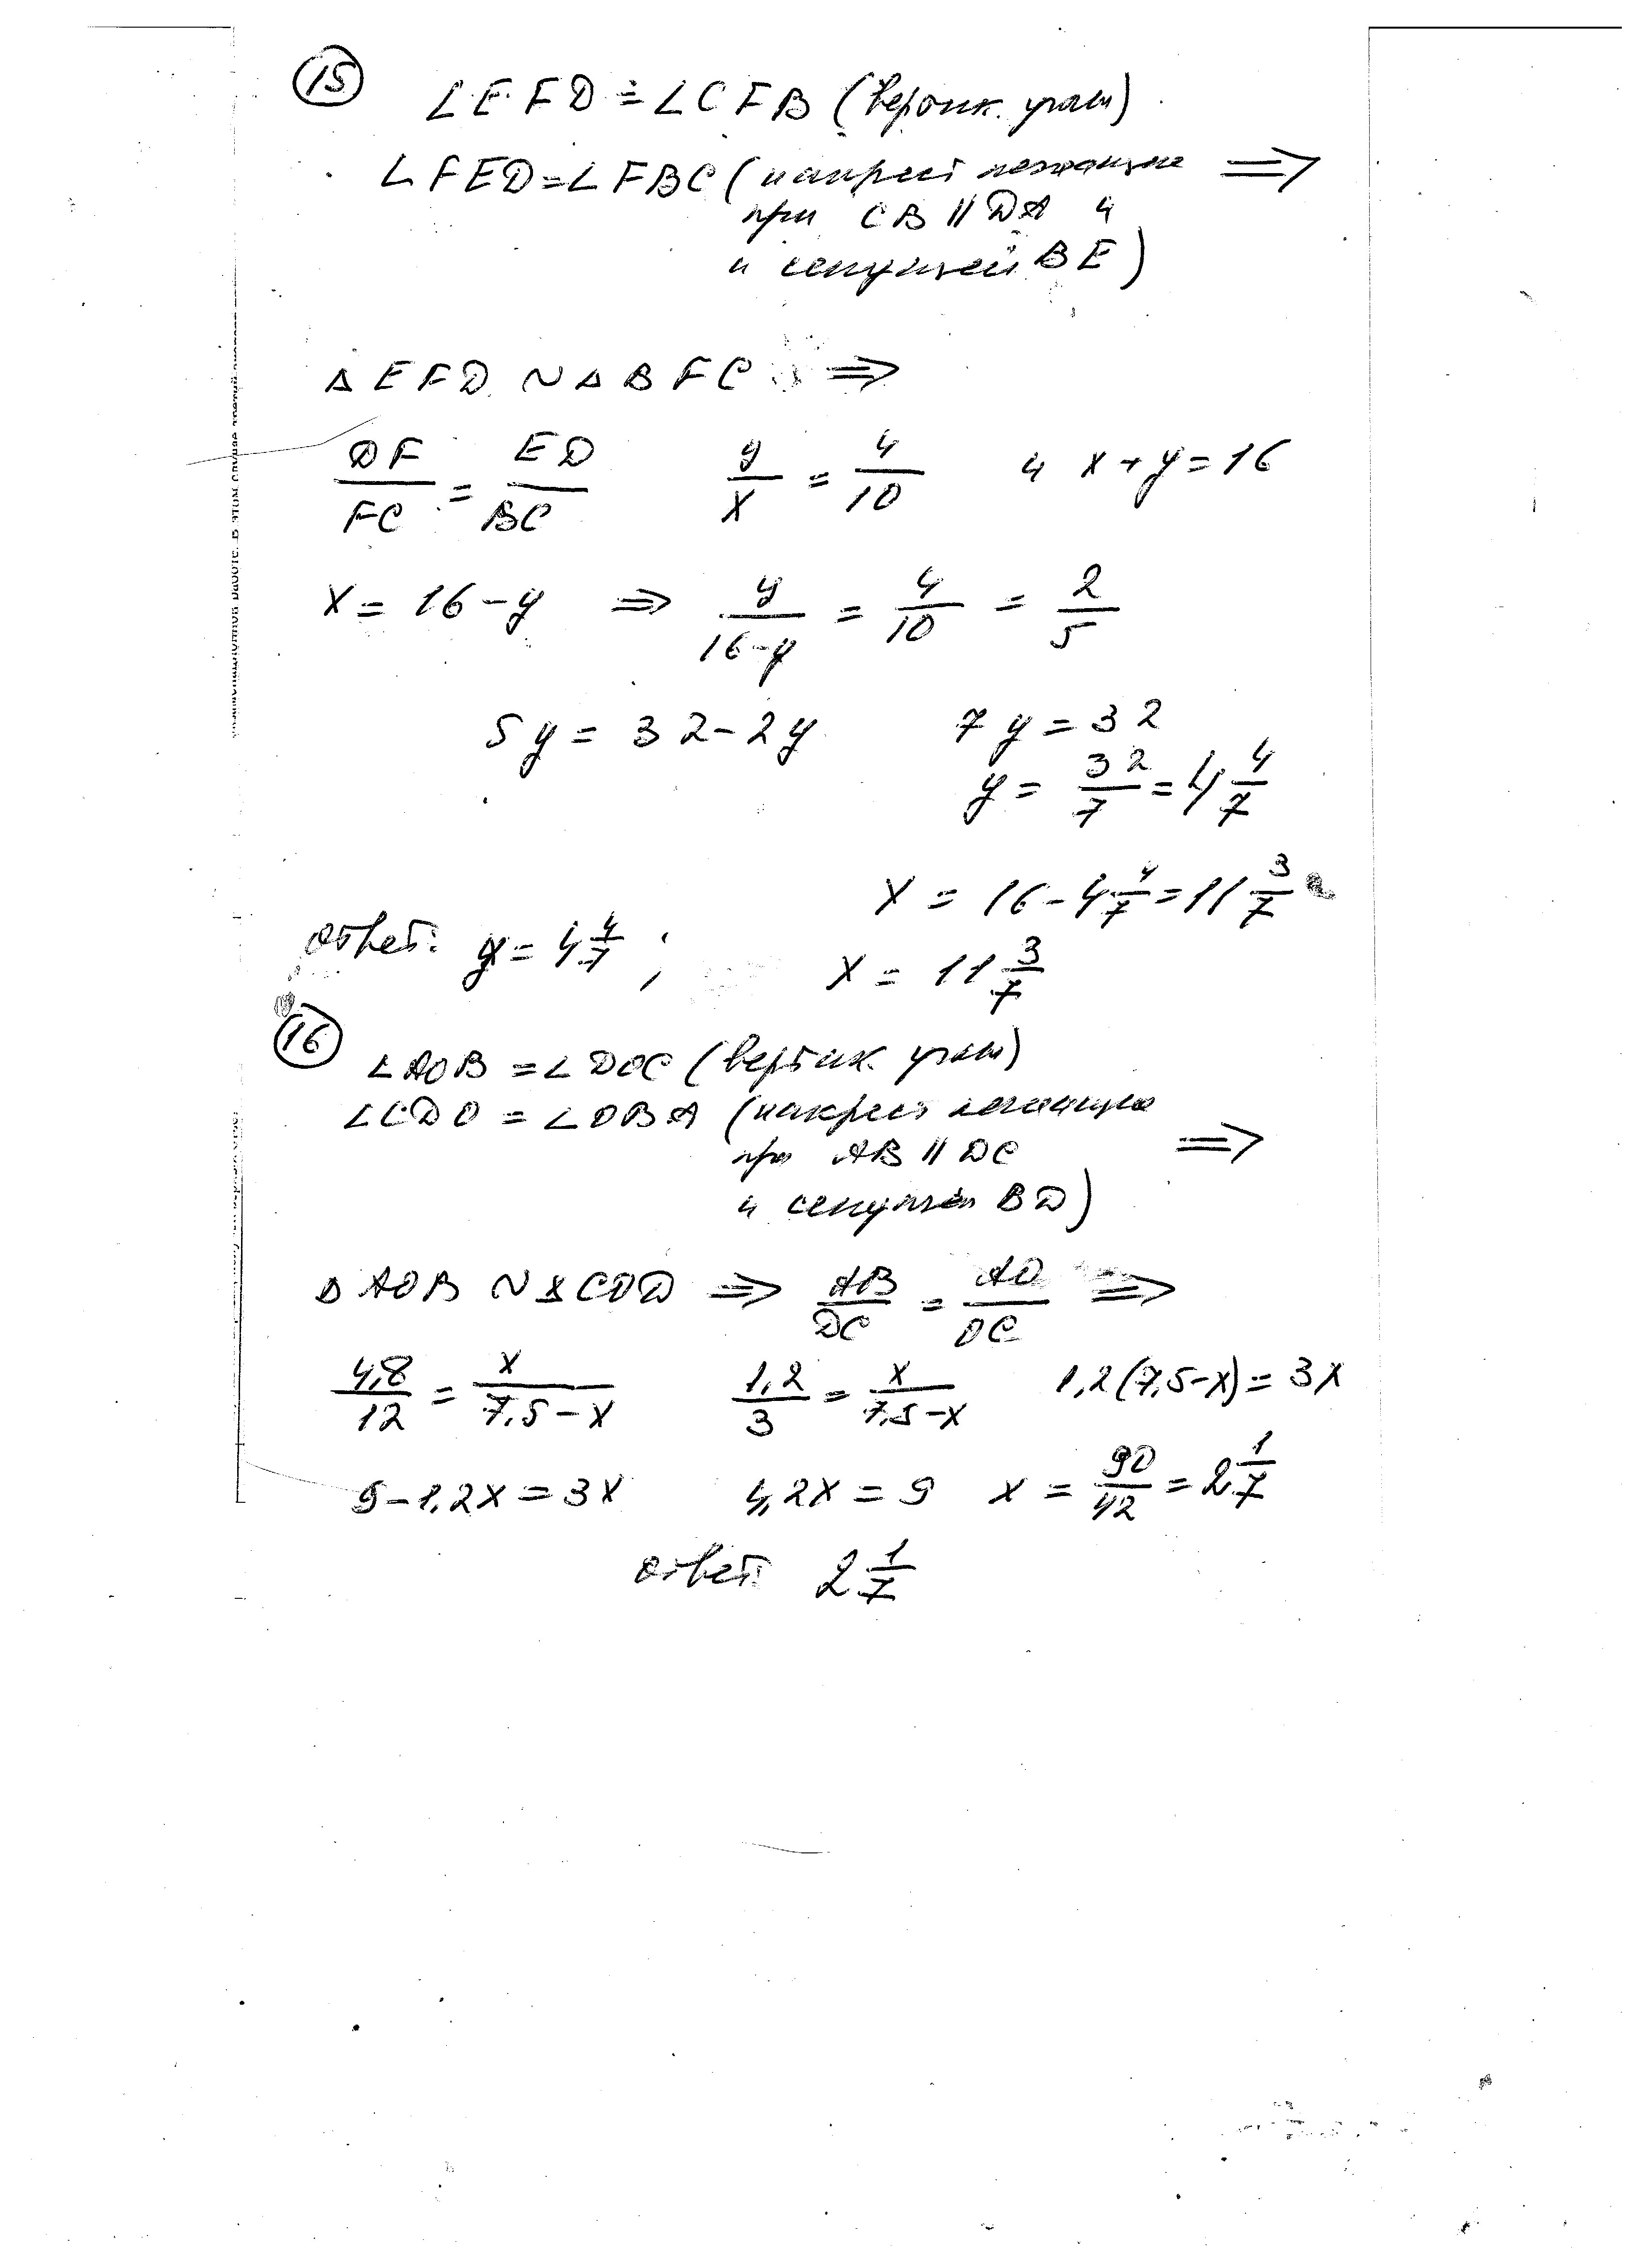 15
∠EFD = ∠CFB (вертик. углы)
∠FED = ∠FBC (накрест лежащие ⇒
при CB || DA и
и секущей BE)
Δ EFD ~ Δ BFC ⇒
DF/FC = ED/BC y/x = 4/10 и x + y = 16
x = 16 - y ⇒ y/(16-y) = 4/10 = 2/5
5y = 32 - 2y 7y = 32
y = 32/7 = 4 4/7
x = 16 - 4 4/7 = 11 3/7
ответ: y = 4 4/7 ; x = 11 3/7
16
∠AOB = ∠DOC (вертик. углы)
∠CDO = ∠OBA (накрест лежащие
при AB || DC ⇒
и секущей BD)
Δ AOB ~ Δ COD ⇒ AB/DC = AO/OC ⇒
4,8/12 = x/(7,5-x) 1,2/3 = x/(7,5-x) 1,2(7,5-x) = 3x
9 - 1,2x = 3x 4,2x = 9 x = 90/42 = 2 1/7
ответ: 2 1/7